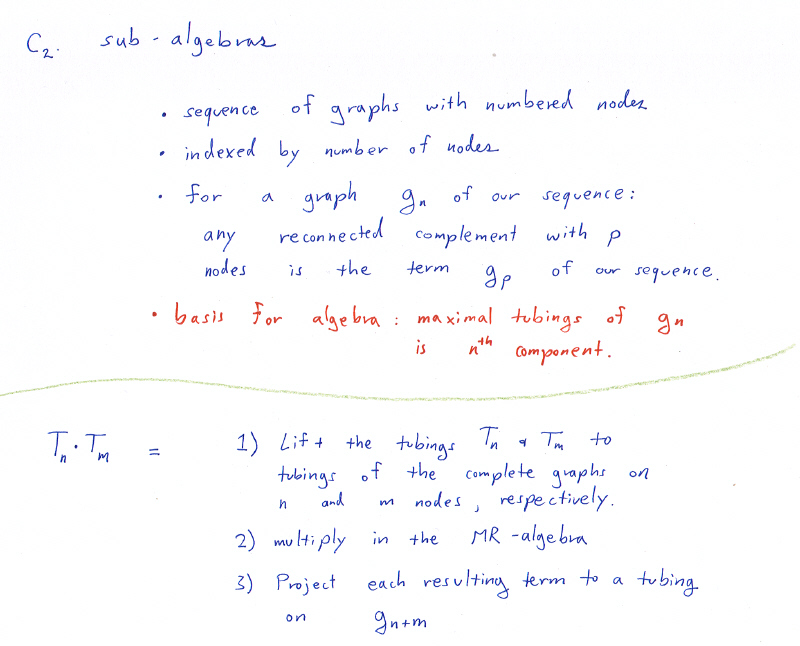 C₂. sub-algebras
• sequence of graphs with numbered nodes
• indexed by number of nodes
• for a graph gₙ of our sequence:
any reconnected complement with p
nodes is the term gₚ of our sequence.
• basis for algebra: maximal tubings of gₙ
is nᵗʰ component.
Tₙ · Tₘ = 1) Lift the tubings Tₙ & Tₘ to
tubings of the complete graphs on
n and m nodes, respectively.
2) multiply in the MR-algebra
3) Project each resulting term to a tubing
on gₙ₊ₘ